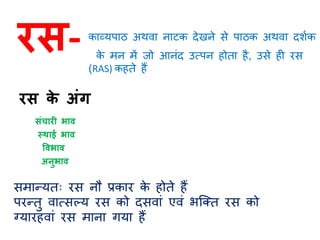 रस- काव्यपाठ अथवा नाटक देखने से पाठक अथवा दर्शक
के मन में जो आनंद उत्पन होता है, उसे ही रस
(RAS) कहते हैं
रस के अंग
संचारी भाव
स्थाई भाव
विभाव
अनुभाव
समान्यतः रस नौ प्रकार के होते हैं
परन्तु वात्सल्य रस को दसवां एवं भक्ति रस को
ग्यारहवां रस माना गया हैं